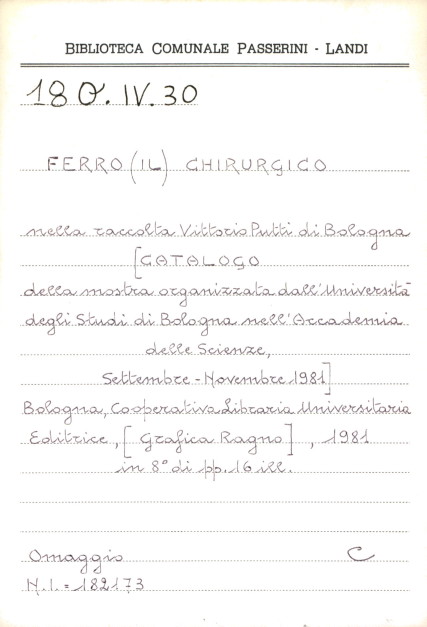 BIBLIOTECA COMUNALE PASSERINI - LANDI
180.IV.30
FERRO (IL) CHIRURGICO
nella raccolta Vittorio Putti di Bologna
[CATALOGO
della mostra organizzata dall'Università
degli Studi di Bologna nell'Accademia
delle Scienze,
Settembre - Novembre 1981]
Bologna, Cooperativa Libraria Universitaria
Editrice, [Grafica Ragno], 1981
in 8° di pp. 16 ill.
Omaggio C
N.I. = 182173